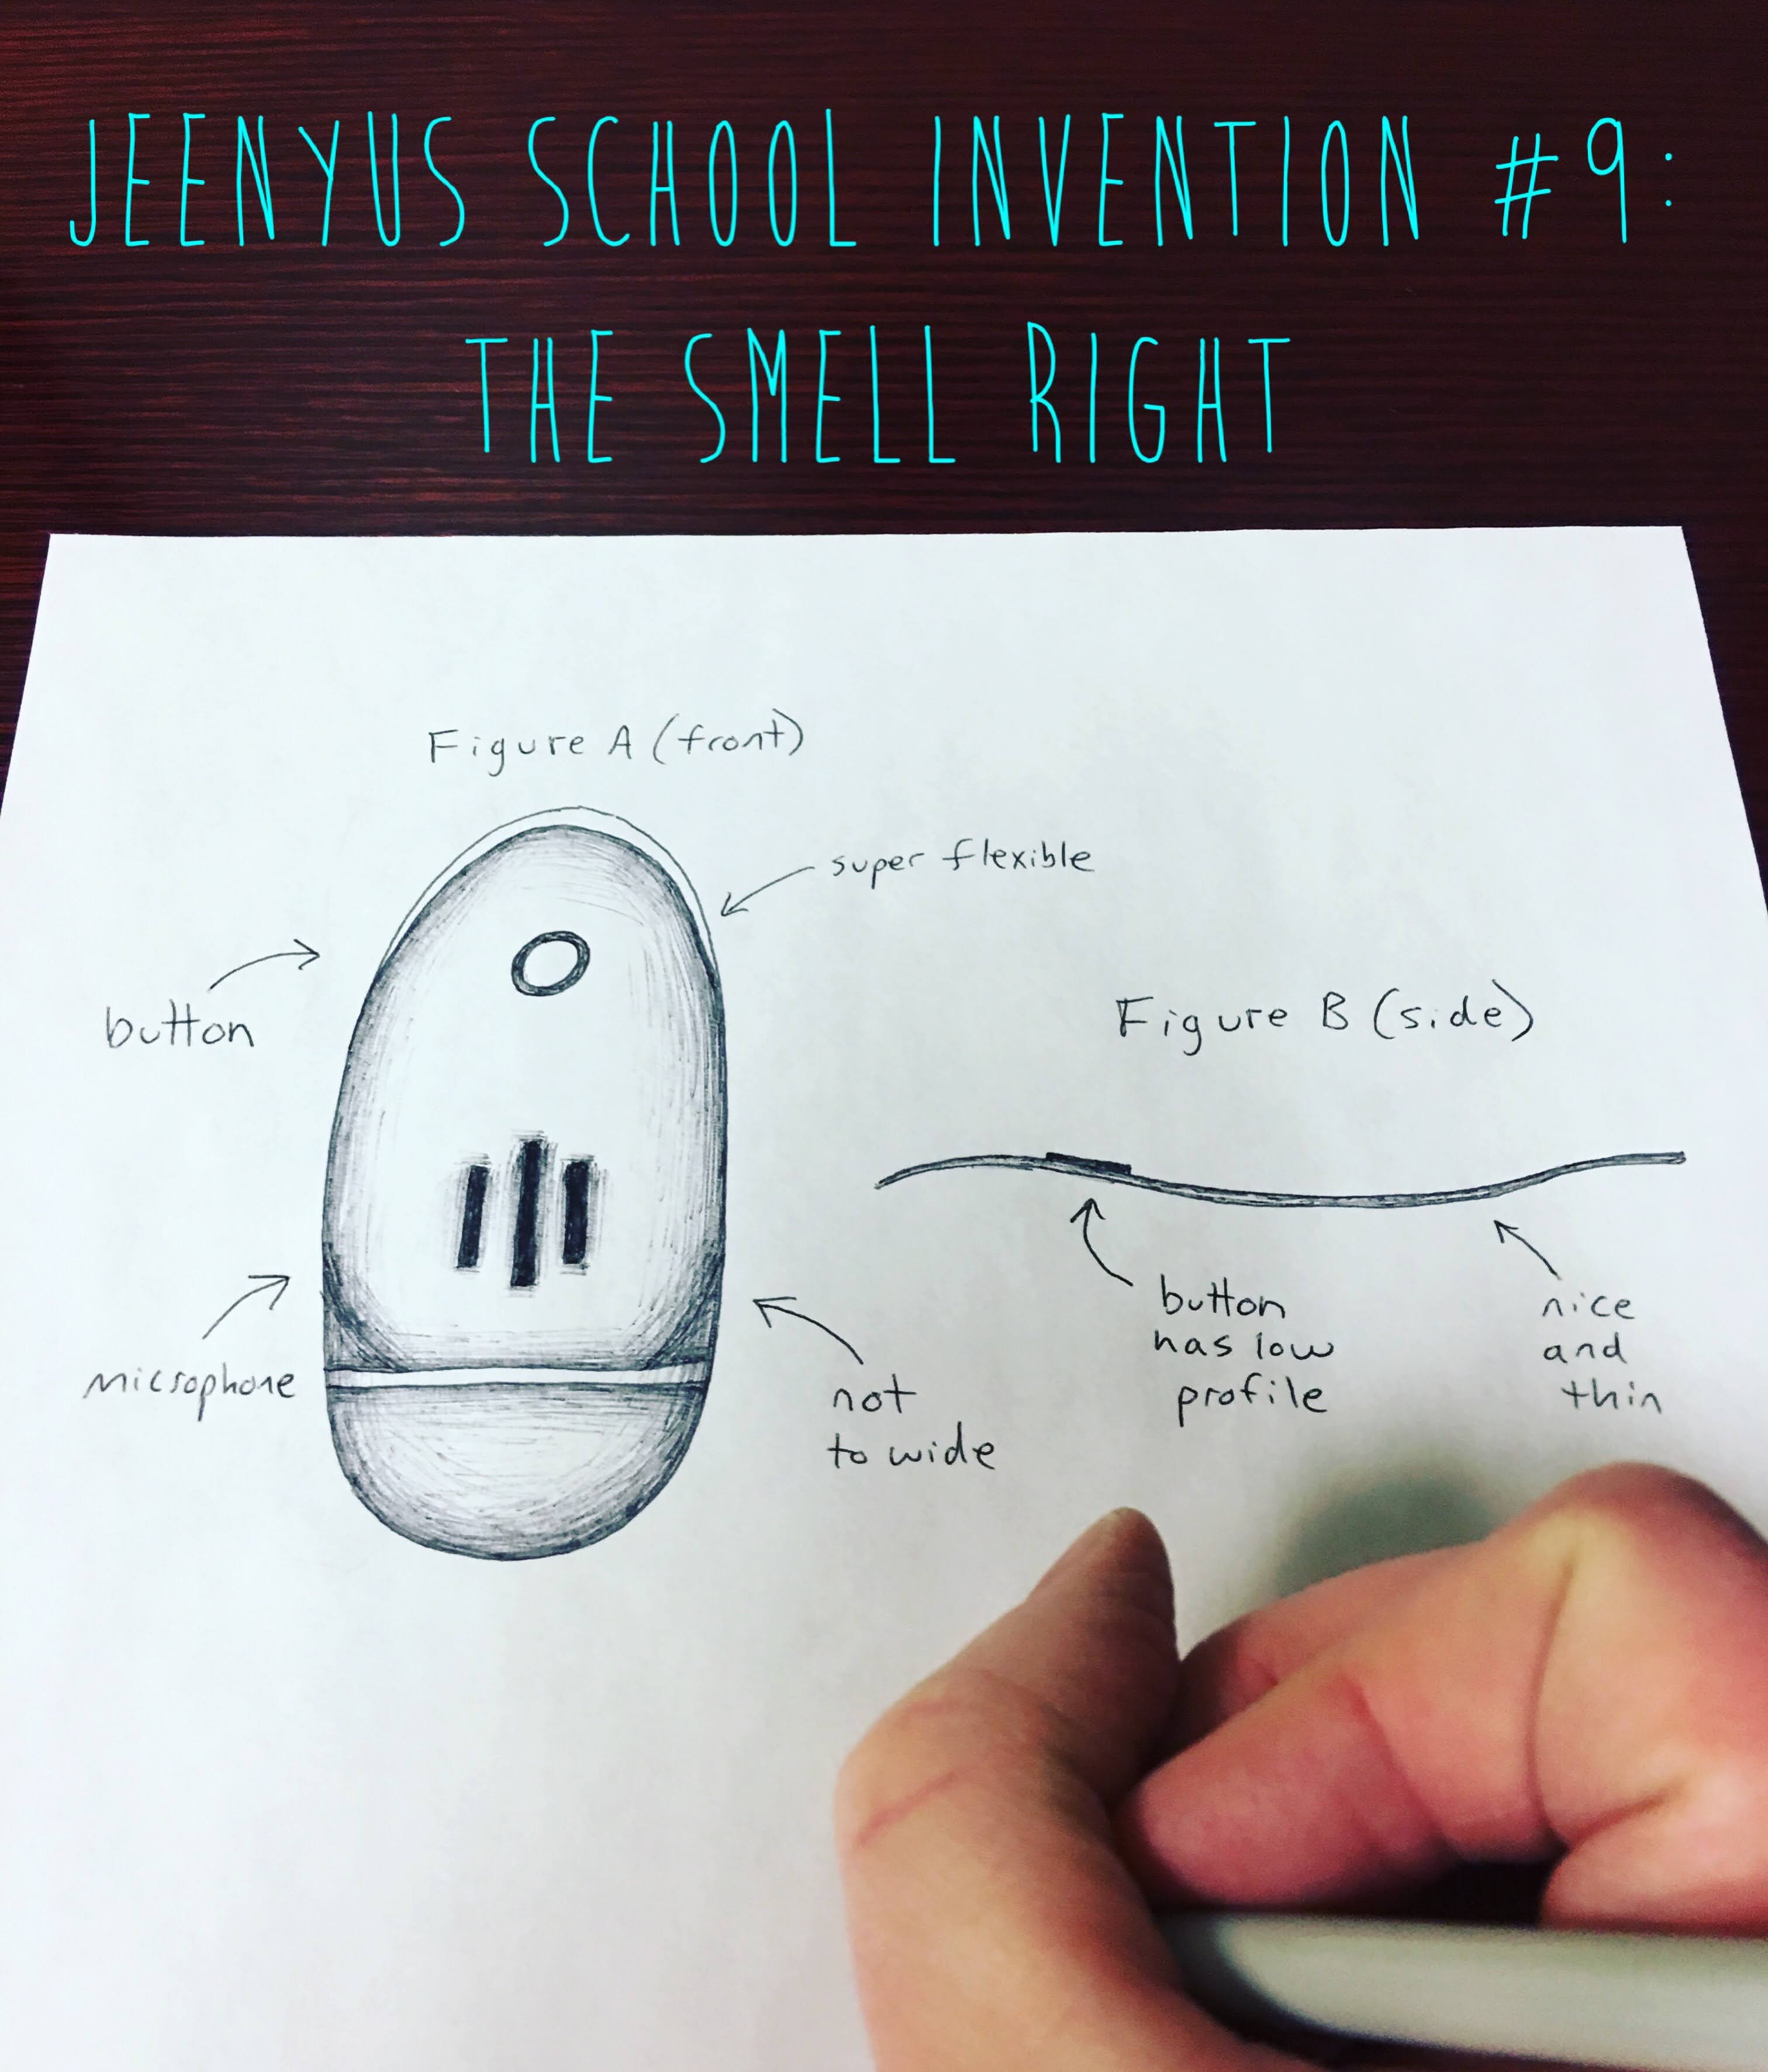 JEENYUS SCHOOL INVENTION #9:
THE SMELL RIGHT
Figure A (front)
super flexible
button
microphone
not
to wide
Figure B (side)
button
has low
profile
nice
and
thin